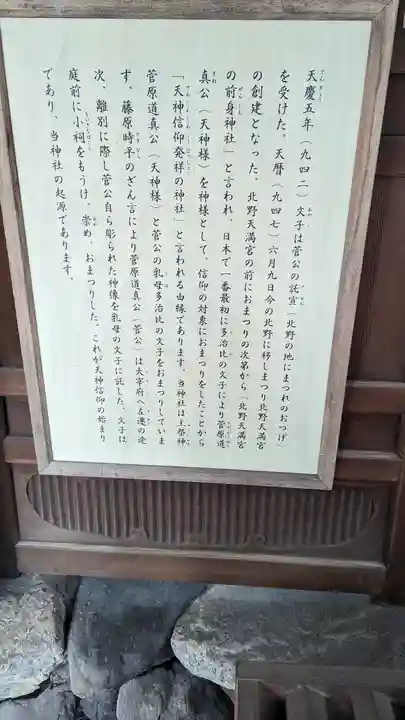 天慶五年（九四二）文子は菅公の託宣（北野の地にまつれのおつげ）
を受けた。天暦（九四七）六月九日今の北野に移しまつり北野天満宮
の創建となった。北野天満宮の前におまつりの次第から（北野天満宮
の前身神社」と言われ、日本で一番最初に多治比の文子により菅原道
真公（天神様）を神様として、信仰の対象におまつりをしたことから
「天神信仰発祥の神社」と言われる由縁であります。当神社は主祭神
菅原道真公（天神様）と菅公の乳母多治比の文子をおまつりしていま
す。藤原時平のざん言により菅原道真公（菅公）は大宰府へ左遷の途
次、離別に際し菅公自ら彫られた神像を乳母の文子に託した。文子は
庭前に小祠をもうけ、崇め、おまつりした。これが天神信仰の始まり
であり、当神社の起源であります。